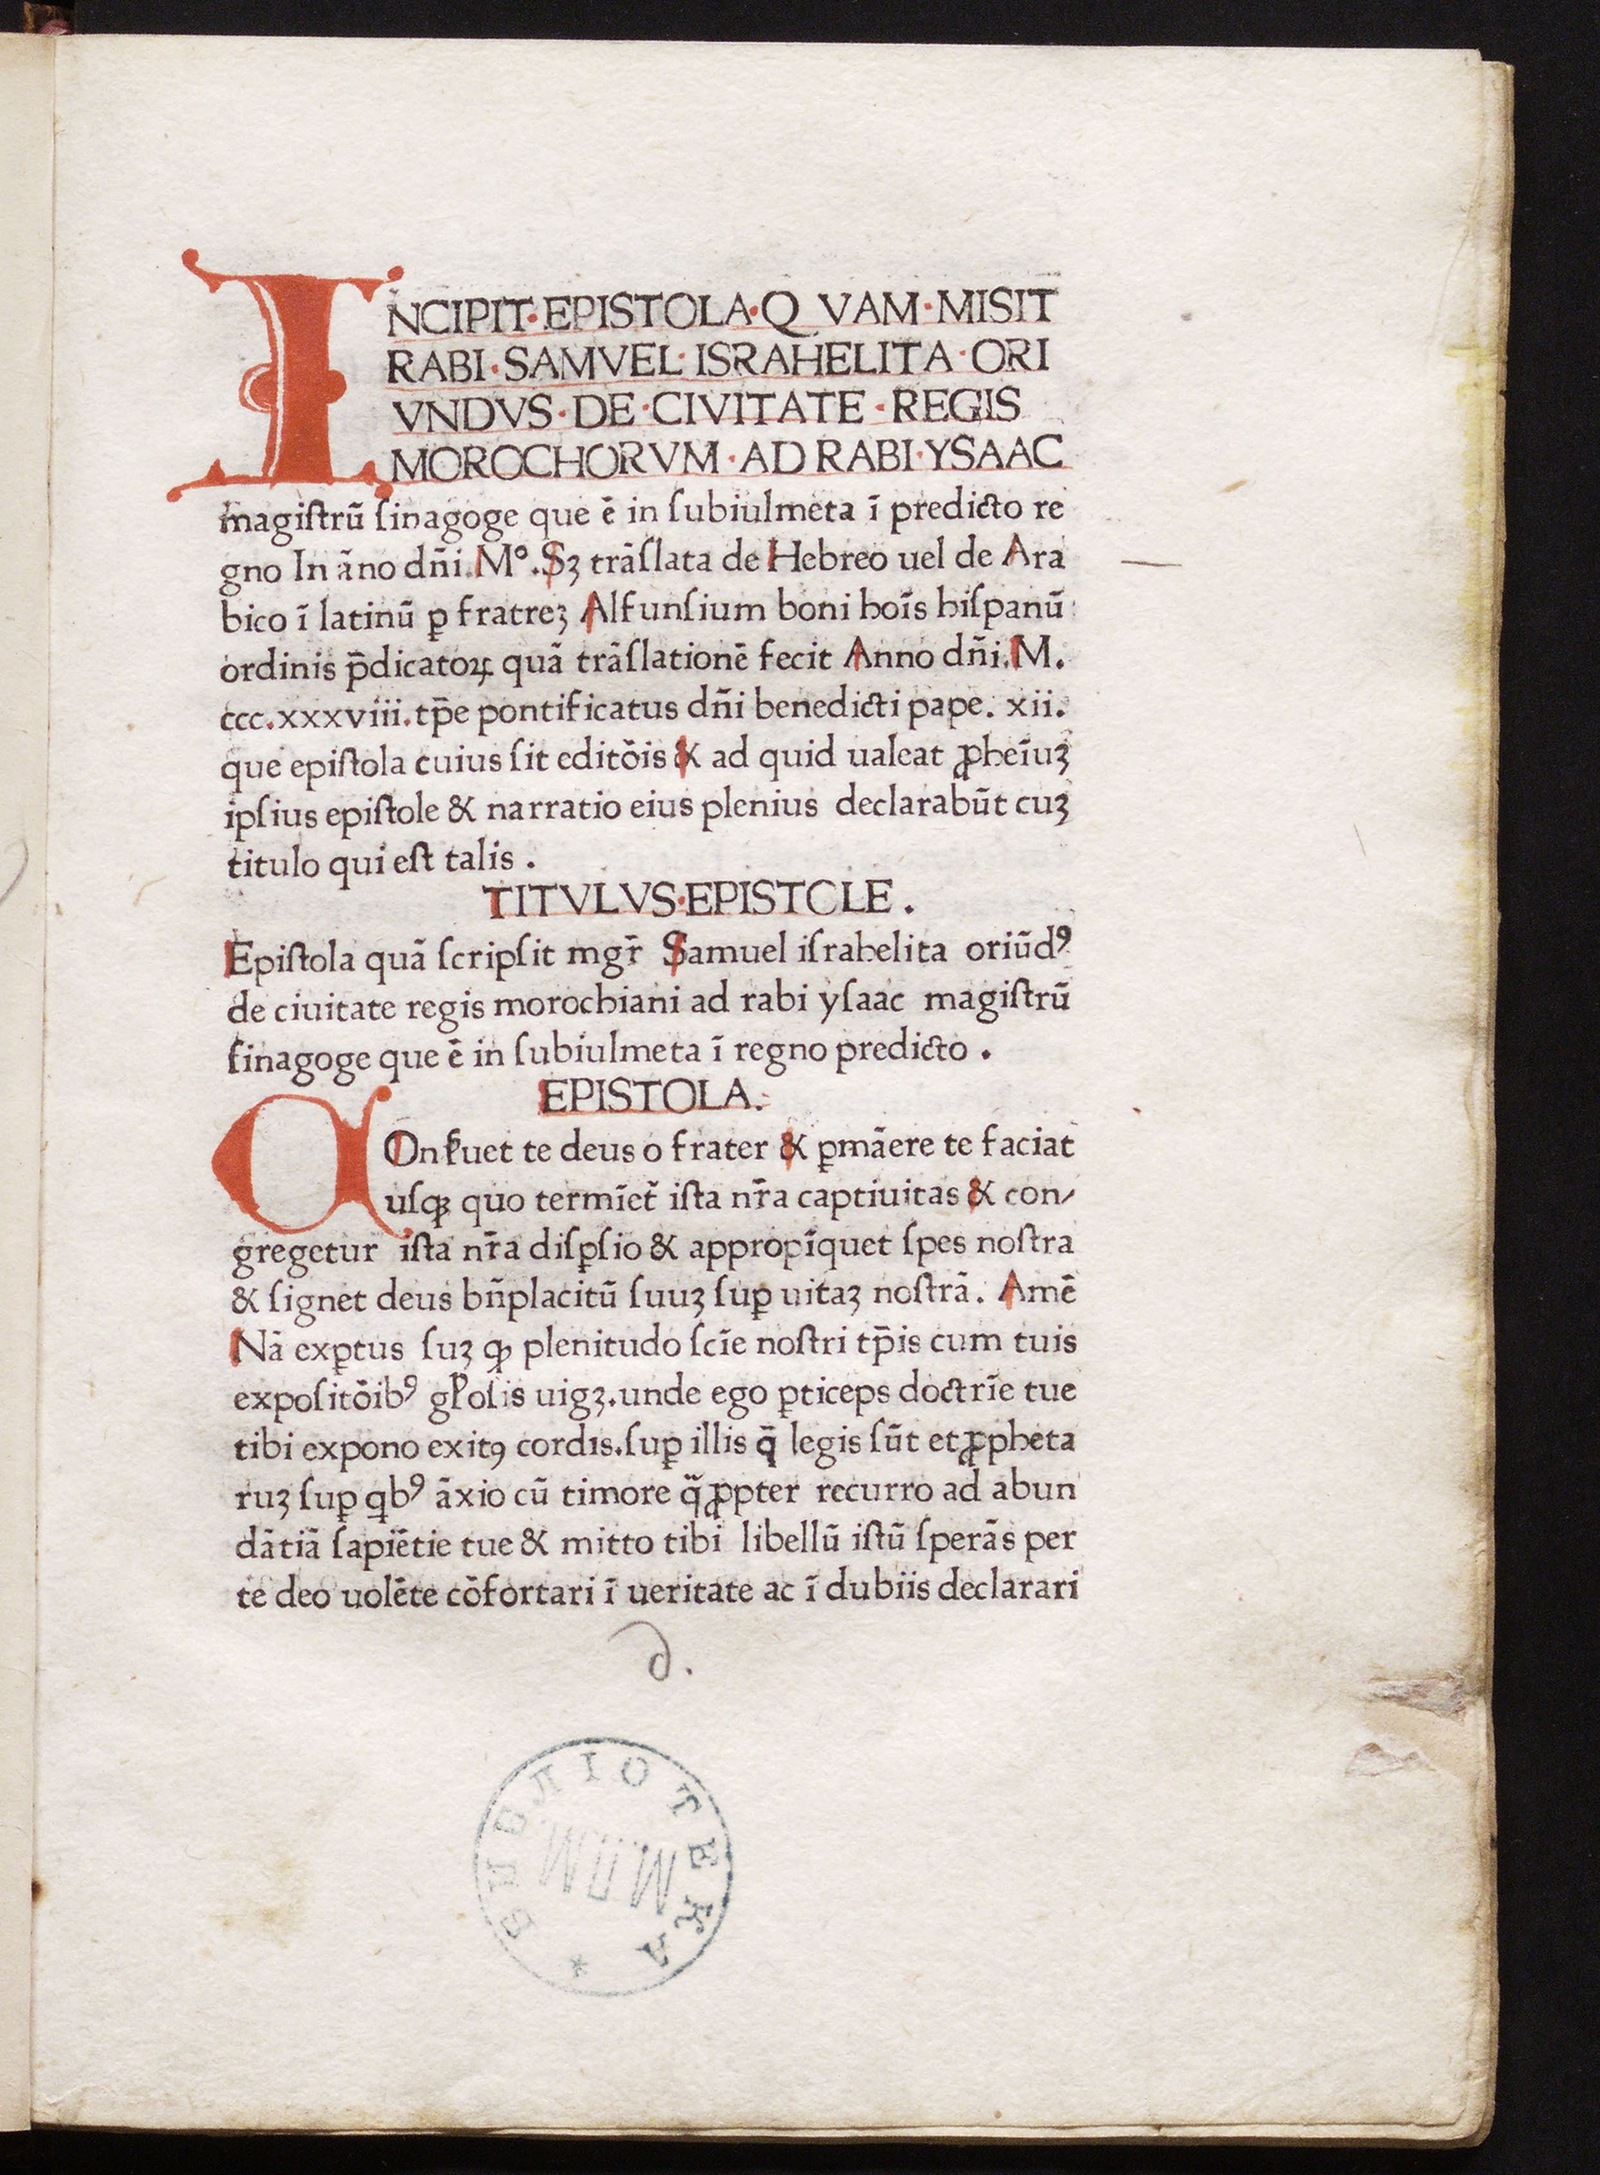 INCIPIT·EPISTOLA·Q VAM·MISIT
RABI·SAMVEL·ISRAHELITA·ORI
VNDVS·DE·CIVITATE·REGIS
MOROCHORVM·AD RABI·YSAAC
magiſtrū ſinagoge que ē in ſubiulmeta ī predicto re
gno In āno dn̄i.Mº.Sꝫ trāſlata de Hebreo uel de Ara
bico ī latinū ꝑ fratreꝫ Alfunſium boni hoīs hiſpanū
ordinis p̄dicatoꝝ quā trāſlationē fecit Anno dn̄i.M.
ccc.xxxviii.tp̄e pontificatus dn̄i benedicti pape. xii.
que epiſtola cuius ſit editōis & ad quid ualeat ꝓheīuꝫ
ipſius epiſtole & narratio eius plenius declarabūt cuꝫ
titulo qui eſt talis .
TITVLVS·EPISTCLE .
Epiſtola quā ſcripſit mgr̄ Samuel iſrahelita oriūdꝰ
de ciuitate regis morochiani ad rabi yſaac magiſtrū
ſinagoge que ē in ſubiulmeta ī regno predicto .
EPISTOLA.
COnſ̉uet te deus o frater & ꝑmāere te faciat
uſqꝫ quo termīet̉ iſta nr̄a captiuitas & con⸗
gregetur iſta nr̄a diſꝑſio & appropīquet ſpes noſtra
& ſignet deus bn̄placitū ſuuꝫ ſuꝑ uitaꝫ noſtrā. Amē
Nā exꝑtus ſuꝫ ꝙ plenitudo ſcīe noſtri tp̄is cum tuis
expoſitōibꝰ gl̉oſis uigꝫ.unde ego ꝑticeps doctrīe tue
tibi expono exitꝯ cordis.ſuꝑ illis q̄ legis ſūt et ꝓpheta
ruꝫ ſuꝑ qbꝰ āxio cū timore q̄ ꝓpter recurro ad abun
dātiā ſapiētie tue & mitto tibi libellū iſtū ſperās per
te deo uolēte cōfortari ī ueritate ac ī dubiis declarari
∂.
БИБЛІОТЕКА
*